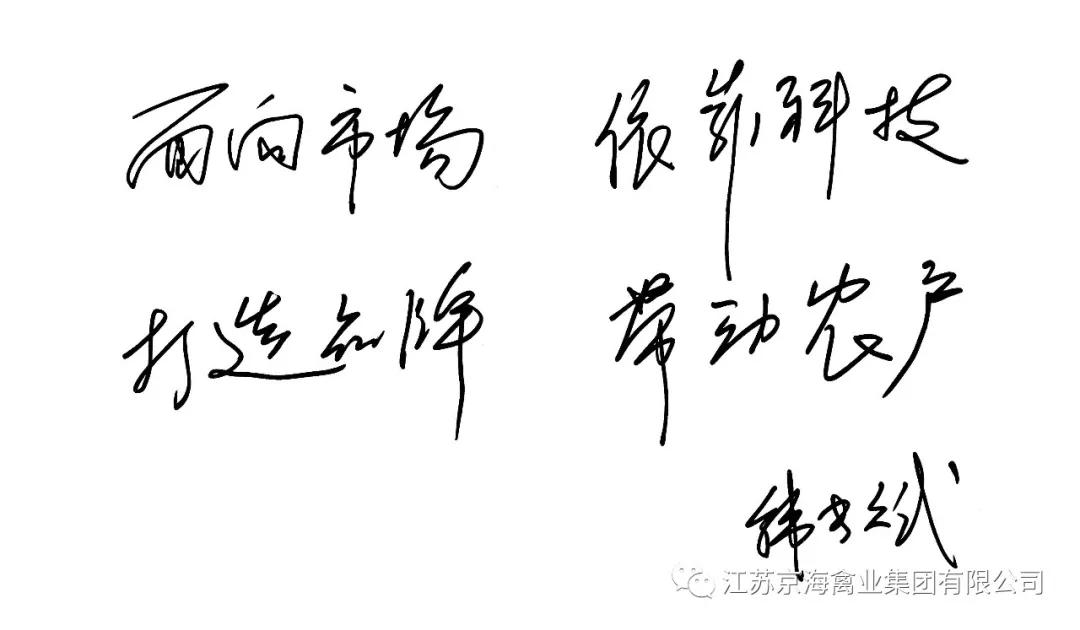 面向市场 依靠科技
打造品牌 带动农户
韩长赋
江苏京海禽业集团有限公司